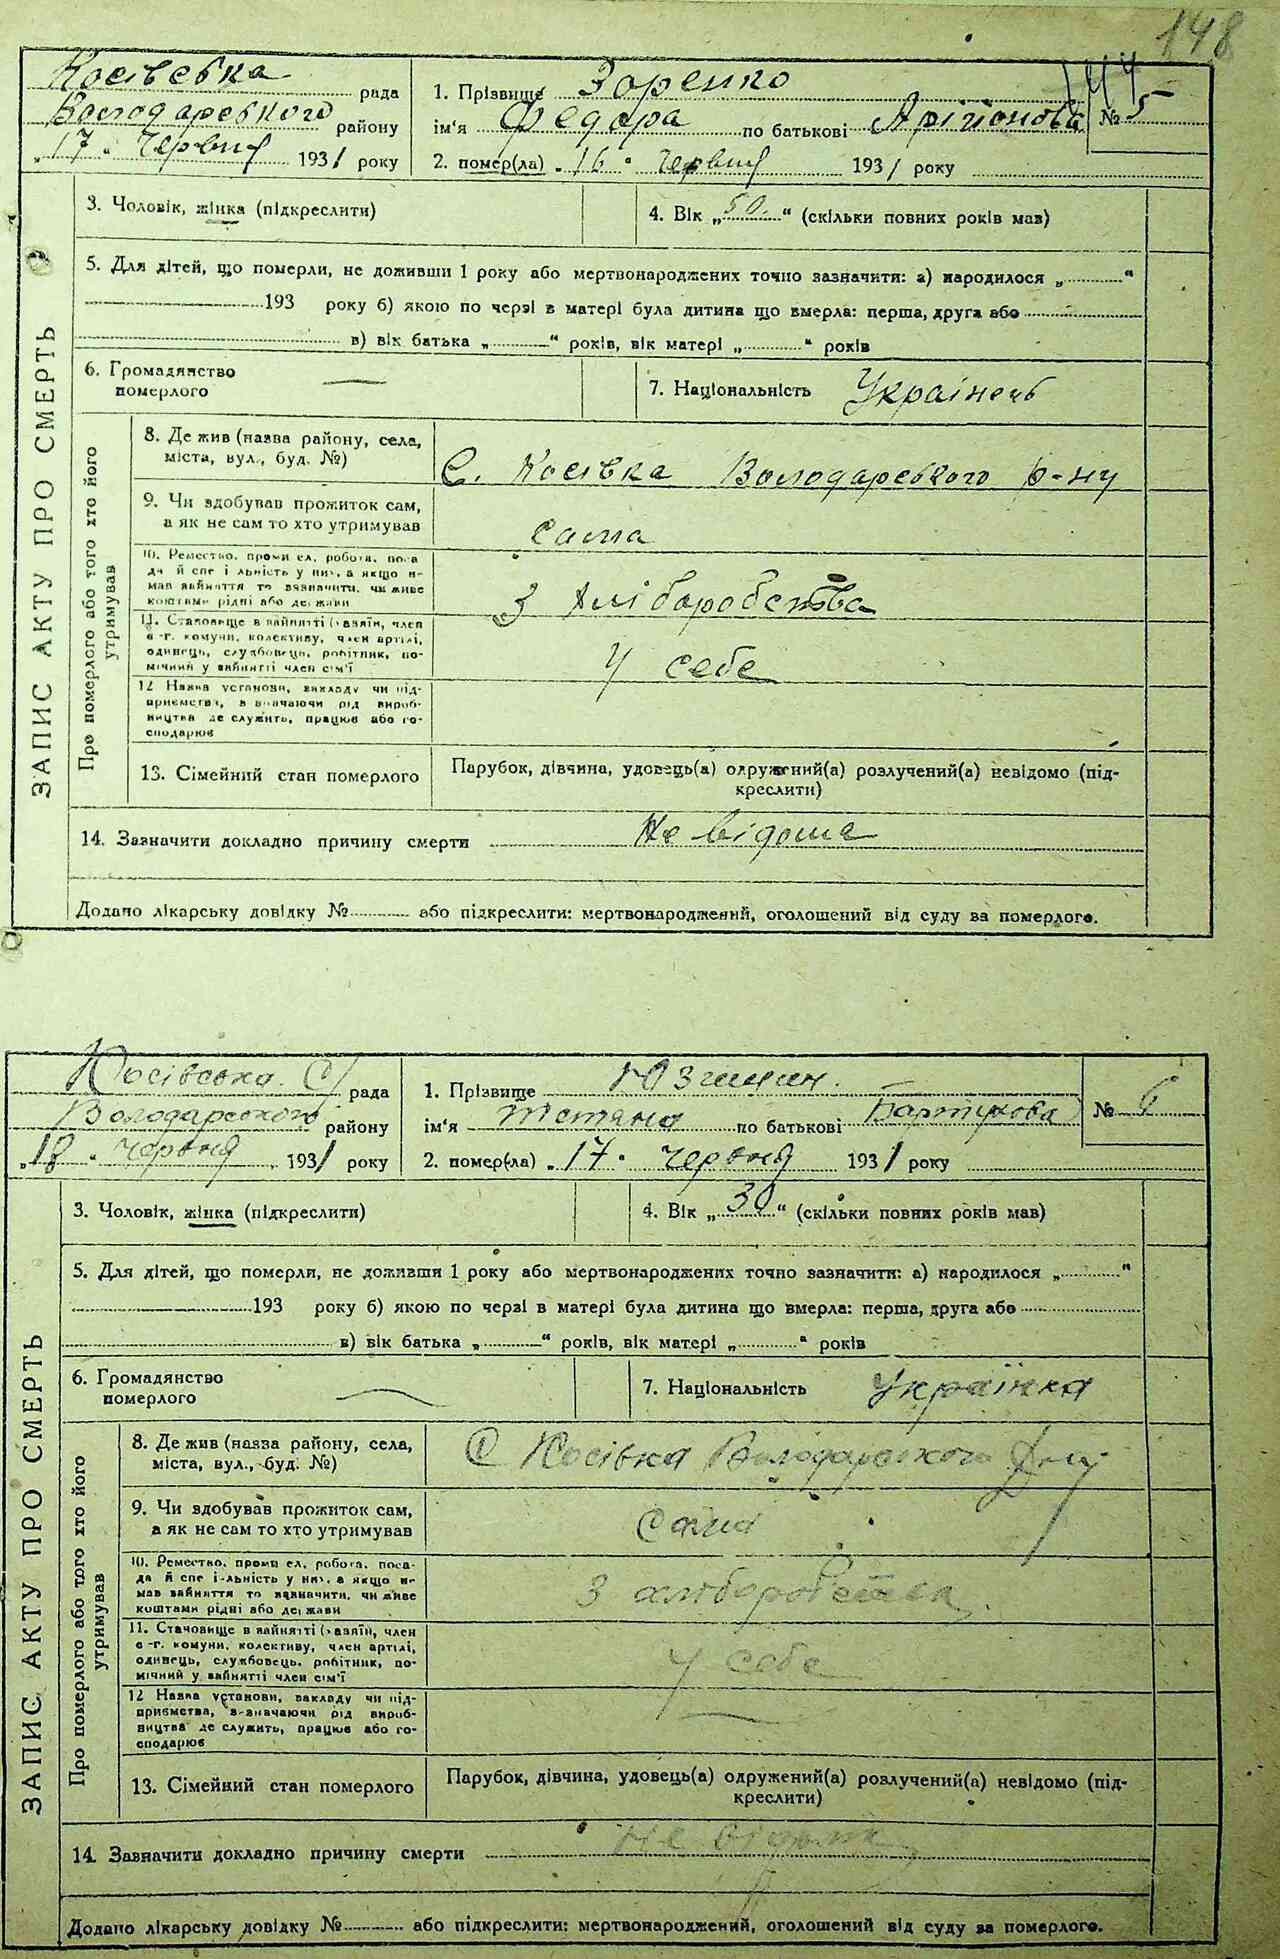 148
144
Косівська рада
Володарського району
"17" червня 1931 року
1. Прізвище Зоренко
ім'я Федора по батькові
№ 5
2. помер(ла) "16" червня 1931 року
ЗАПИС АКТУ ПРО СМЕРТЬ
3. Чоловік, жінка (підкреслити)
4. Вік „50“ (скільки повних років мав)
5. Для дітей, що померли, не доживши 1 року або мертвонароджених точно зазначити: а) народилося „ “
193 року б) якою по черзі в матері була дитина що вмерла: перша, друга або
в) вік батька „ “ років, вік матері „ “ років
6. Громадянство
померлого —
7. Національність Українець
Про померлого або того хто його
утримував
8. Де жив (назва району, села,
міста, вул., буд. №)
С. Косівка Володарського р-ну
9. Чи здобував прожиток сам,
а як не сам то хто утримував
сама
10. Ремество, промисел, робота, поса
да й спеціальність у них, а якщо не
мав зайняття то зазначити, чи живе
коштами рідні або держави
З хліборобства
11. Становище в зайнятті (хазяїн, член
с.-г. комуни, колективу, член артілі,
одинець, службовець, робітник, по-
мічний у зайнятті член сім'ї
У себе
12 Назва установи, закладу чи під-
приємства, зазначаючи рід вироб-
ництва де служить, працює або го-
сподарює
13. Сімейний стан померлого
Парубок, дівчина, удовець(а) одружений(а) розлучений(а) невідомо (під-
креслити)
14. Зазначити докладно причину смерти Не відома
Додано лікарську довідку № або підкреслити: мертвонароджений, оголошений від суду за померлого.
Косівська С/рада
Володарського району
"18" червня 1931 року
1. Прізвище
ім'я Тетяна по батькові
№ 6
2. помер(ла) "17" червня 1931 року
ЗАПИС АКТУ ПРО СМЕРТЬ
3. Чоловік, жінка (підкреслити)
4. Вік „30“ (скільки повних років мав)
5. Для дітей, що померли, не доживши 1 року або мертвонароджених точно зазначити: а) народилося „ “
193 року б) якою по черзі в матері була дитина що вмерла: перша, друга або
в) вік батька „ “ років, вік матері „ “ років
6. Громадянство
померлого —
7. Національність Українка
Про померлого або того хто його
утримував
8. Де жив (назва району, села,
міста, вул., буд. №)
С Косівка Володарського
9. Чи здобував прожиток сам,
а як не сам то хто утримував
сама
10. Ремество, промисел, робота, поса-
да й спеціальність у них, а якщо не
мав зайняття то зазначити, чи живе
коштами рідні або держави
З хліборобства
11. Становище в зайнятті (хазяїн, член
с.-г. комуни, колективу, член артілі,
одинець, службовець, робітник, по-
мічний у зайнятті член сім'ї
У себе
12 Назва установи, закладу чи під-
приємства, зазначаючи рід вироб-
ництва де служить, працює або го-
сподарює
—
13. Сімейний стан померлого
Парубок, дівчина, удовець(а) одружений(а) розлучений(а) невідомо (під-
креслити)
14. Зазначити докладно причину смерти Не відома
Додано лікарську довідку № або підкреслити: мертвонароджений, оголошений від суду за померлого.